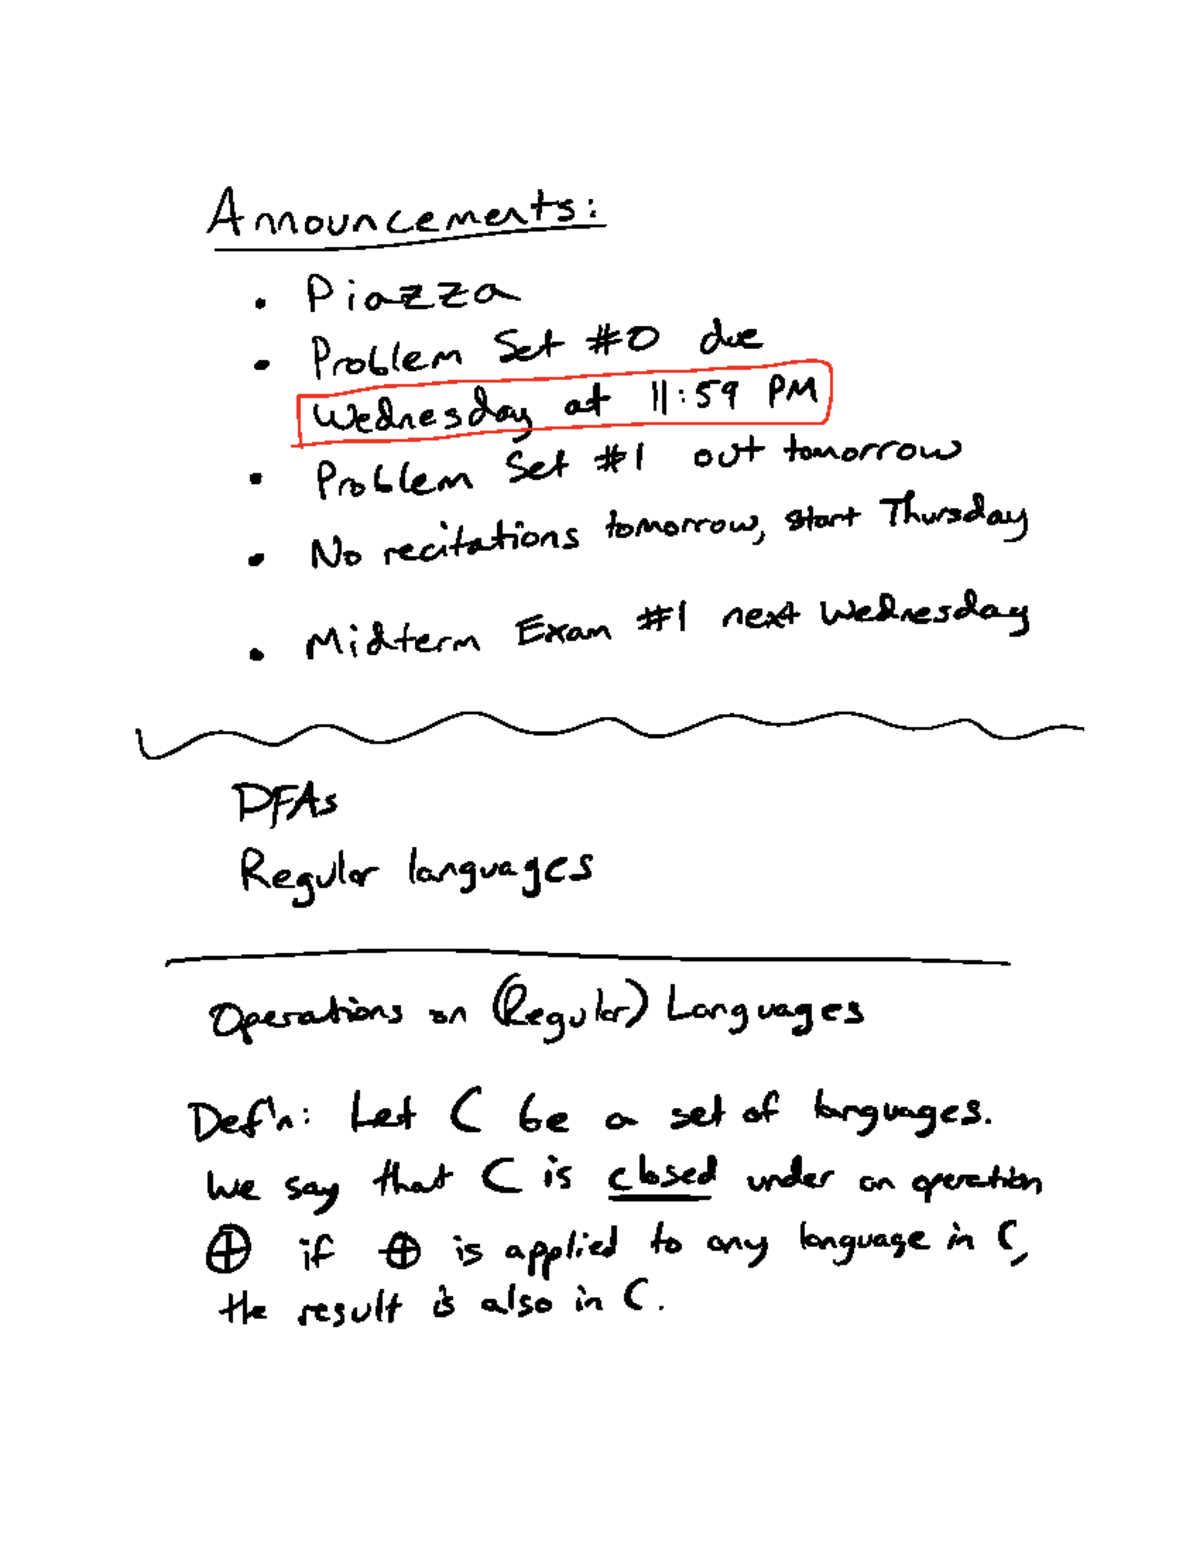 Announcements:
• Piazza
• Problem Set #0 due
Wednesday at 11:59 PM
• Problem Set #1 out tomorrow
• No recitations tomorrow, start Thursday
• Midterm Exam #1 next Wednesday
DFAs
Regular languages
Operations on (Regular) Languages
Def'n: Let C be a set of languages.
We say that C is closed under an operation
⊕ if ⊕ is applied to any language in C,
the result is also in C.